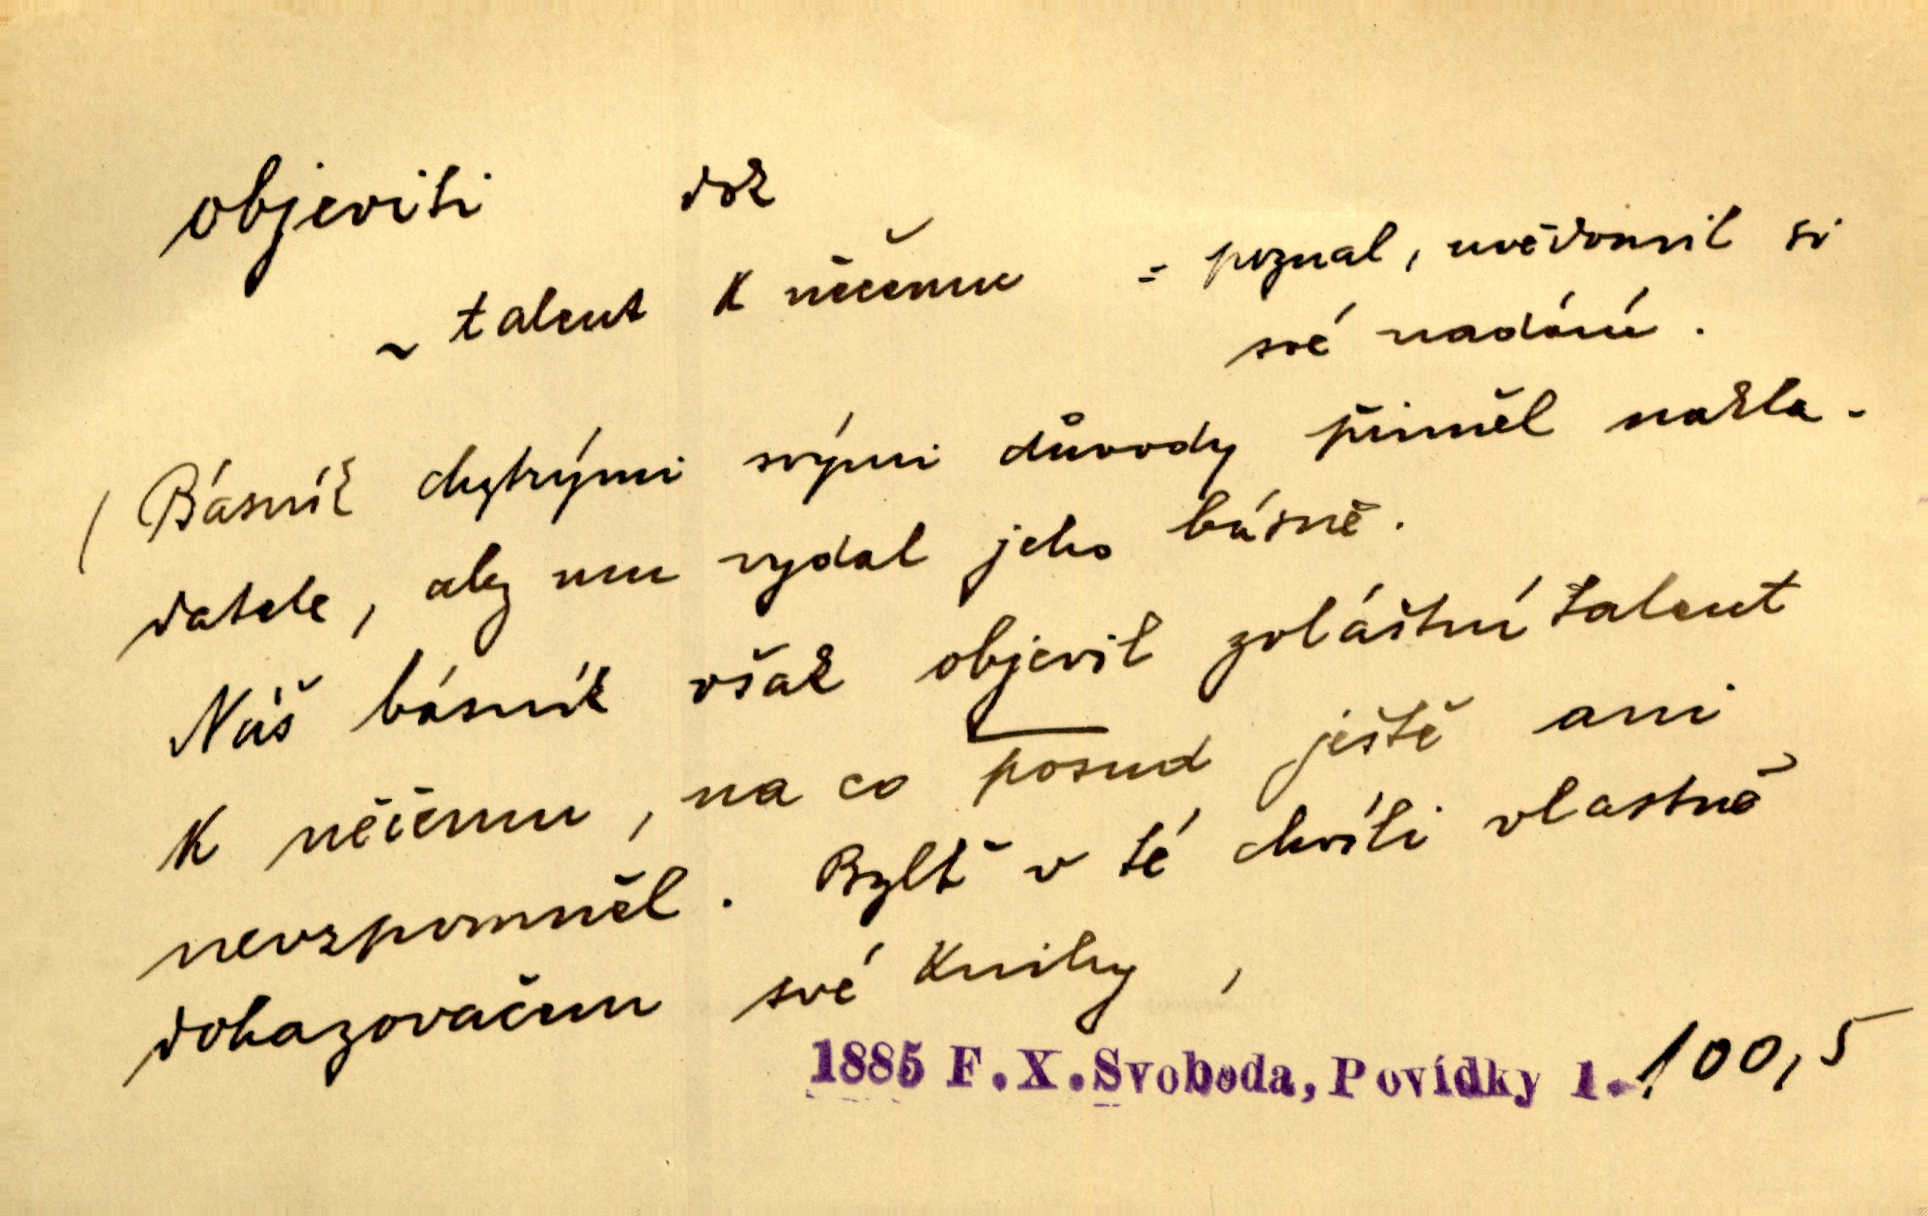 objeviti dok
~ talent k něčemu = poznal, uvědomil si
své nadání.
( Básník chytrými svými důvody přiměl nakla-
datele, aby mu vydal jeho básně.
Náš básník však objevil zvláštní talent
k něčemu, na co posud ještě ani
nevzpomněl. Bylť v té chvíli vlastně
dohazovačem své knihy,
1885 F.X.Svoboda, Povídky 1. 100,5